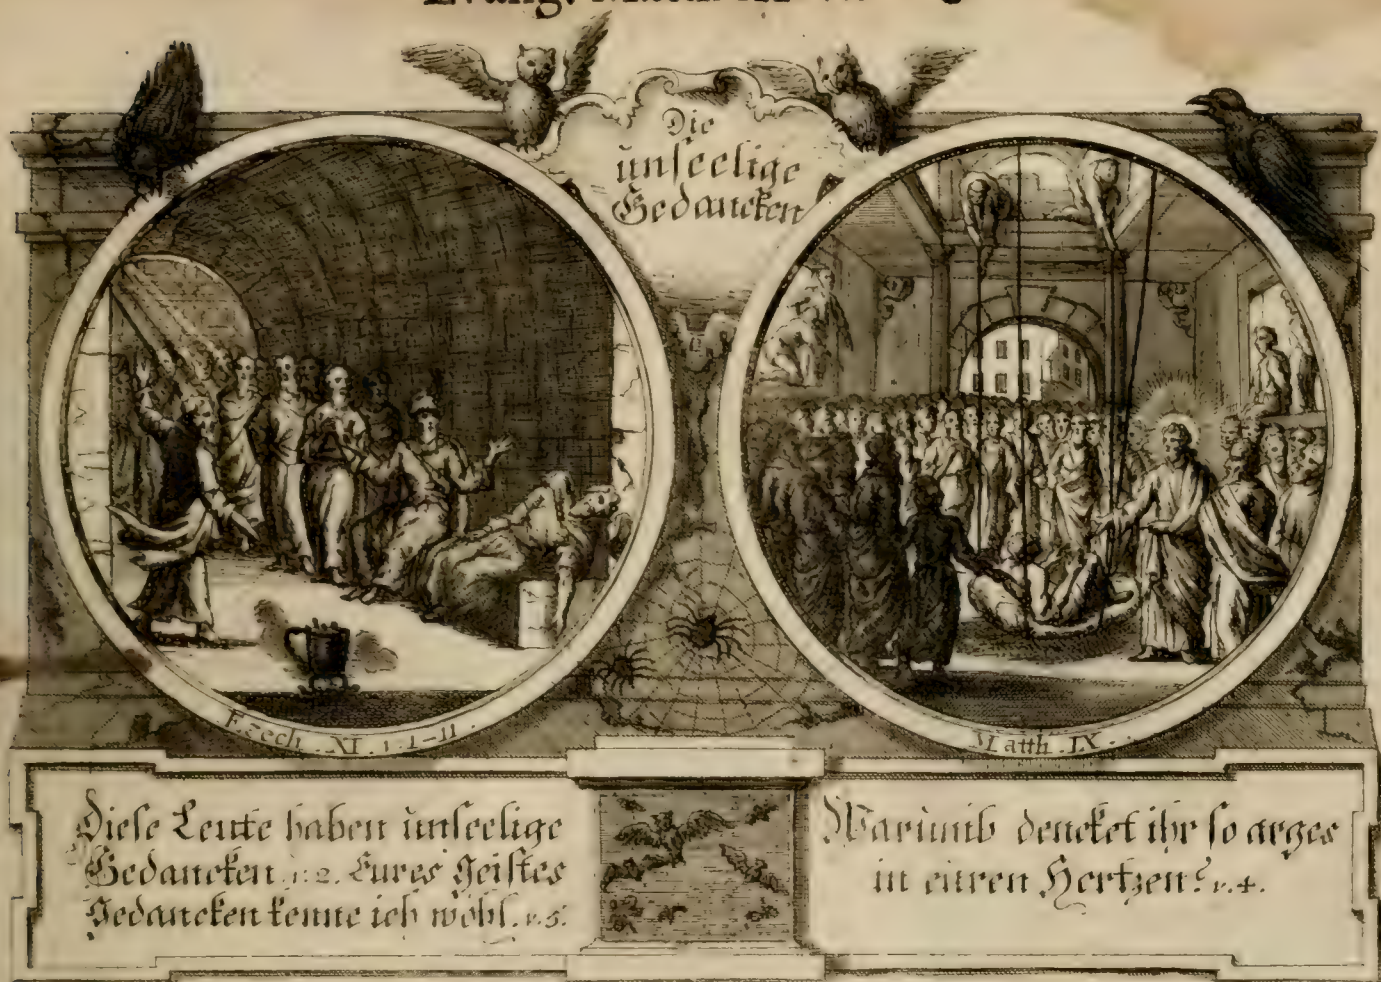 Evang.
Die
unseelige
Gedancken
Ezech. XI. v. 1-11.
Matth. IX.
Diese Leute haben unseelige
Gedancken. v. 2. Eures Geistes
Gedancken kenne ich wohl. v. 5.
Warumb dencket ihr so arges
in euren Hertzen? v. 4.